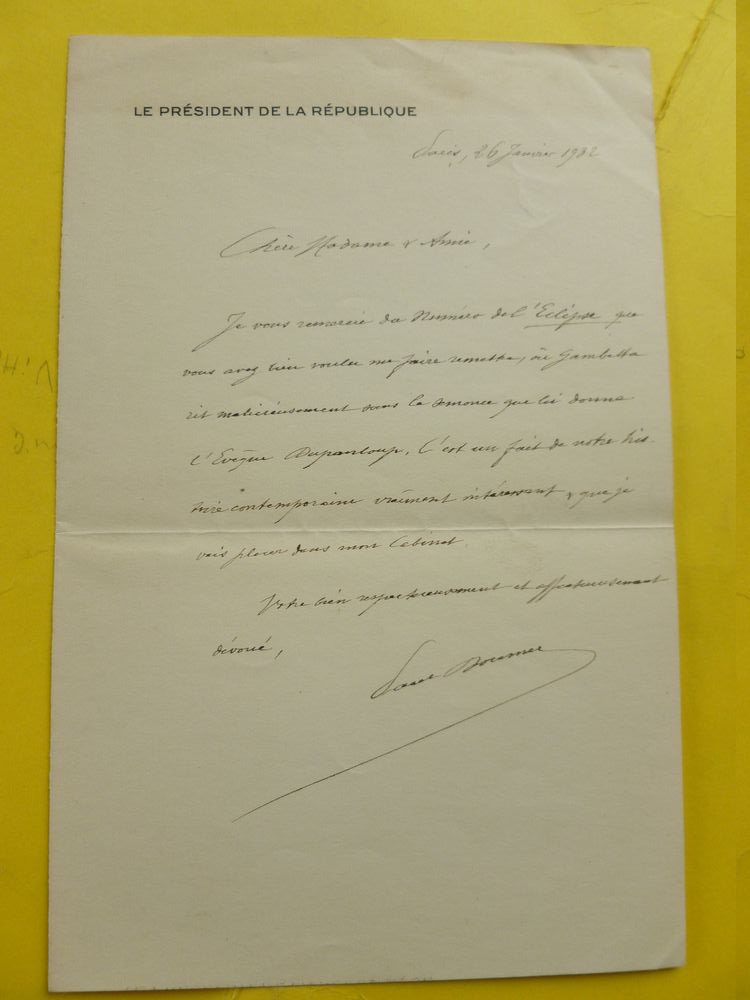 LE PRÉSIDENT DE LA RÉPUBLIQUE
Paris, 26 Janvier 1932
Chère Madame & Amie,
Je vous remercie du Numéro de l'Eclipse que
vous avez bien voulu me faire remettre, où Gambetta
rit malicieusement sous la semonce que lui donne
l'Evêque Dupanloup. C'est un fait de notre his-
toire contemporaine vraiment intéressant & que je
vais placer dans mon Cabinet.
Votre bien respectueusement et affectueusement
dévoué,
Paul Doumer